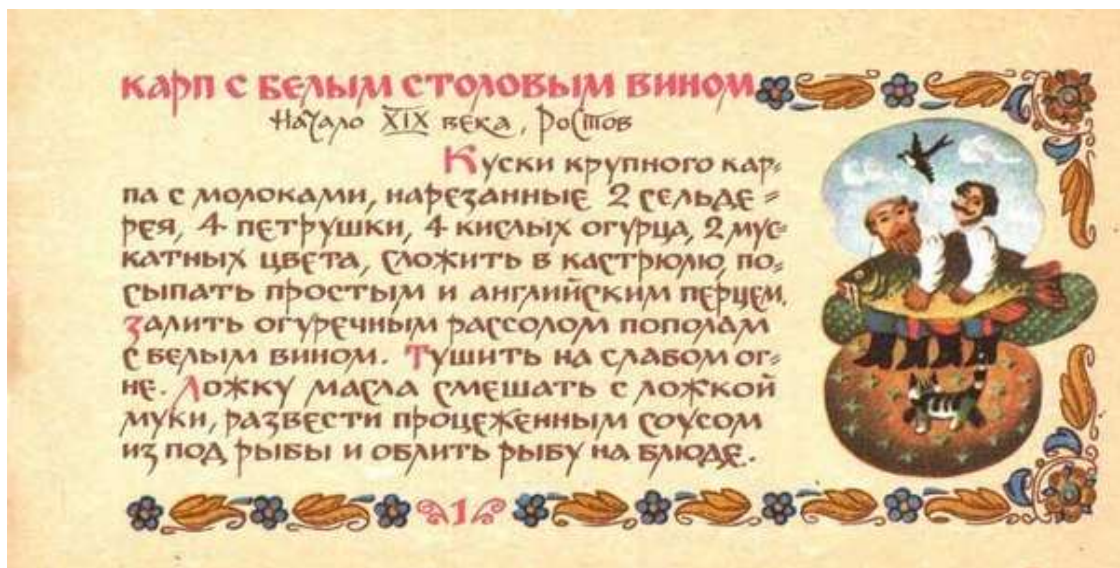 КАРП С БЕЛЫМ СТОЛОВЫМ ВИНОМ
Начало XIX века, Ростов
Куски крупного кар=
па с молоками, нарезанные 2 сельде=
рея, 4 петрушки, 4 кислых огурца, 2 мус=
катных цвета, сложить в кастрюлю, по=
сыпать простым и английским перцем.
Залить огуречным рассолом пополам
с белым вином. Тушить на слабом ог=
не. Ложку масла смешать с ложкой
муки, развести процеженным соусом
из под рыбы и облить рыбу на блюде.
1